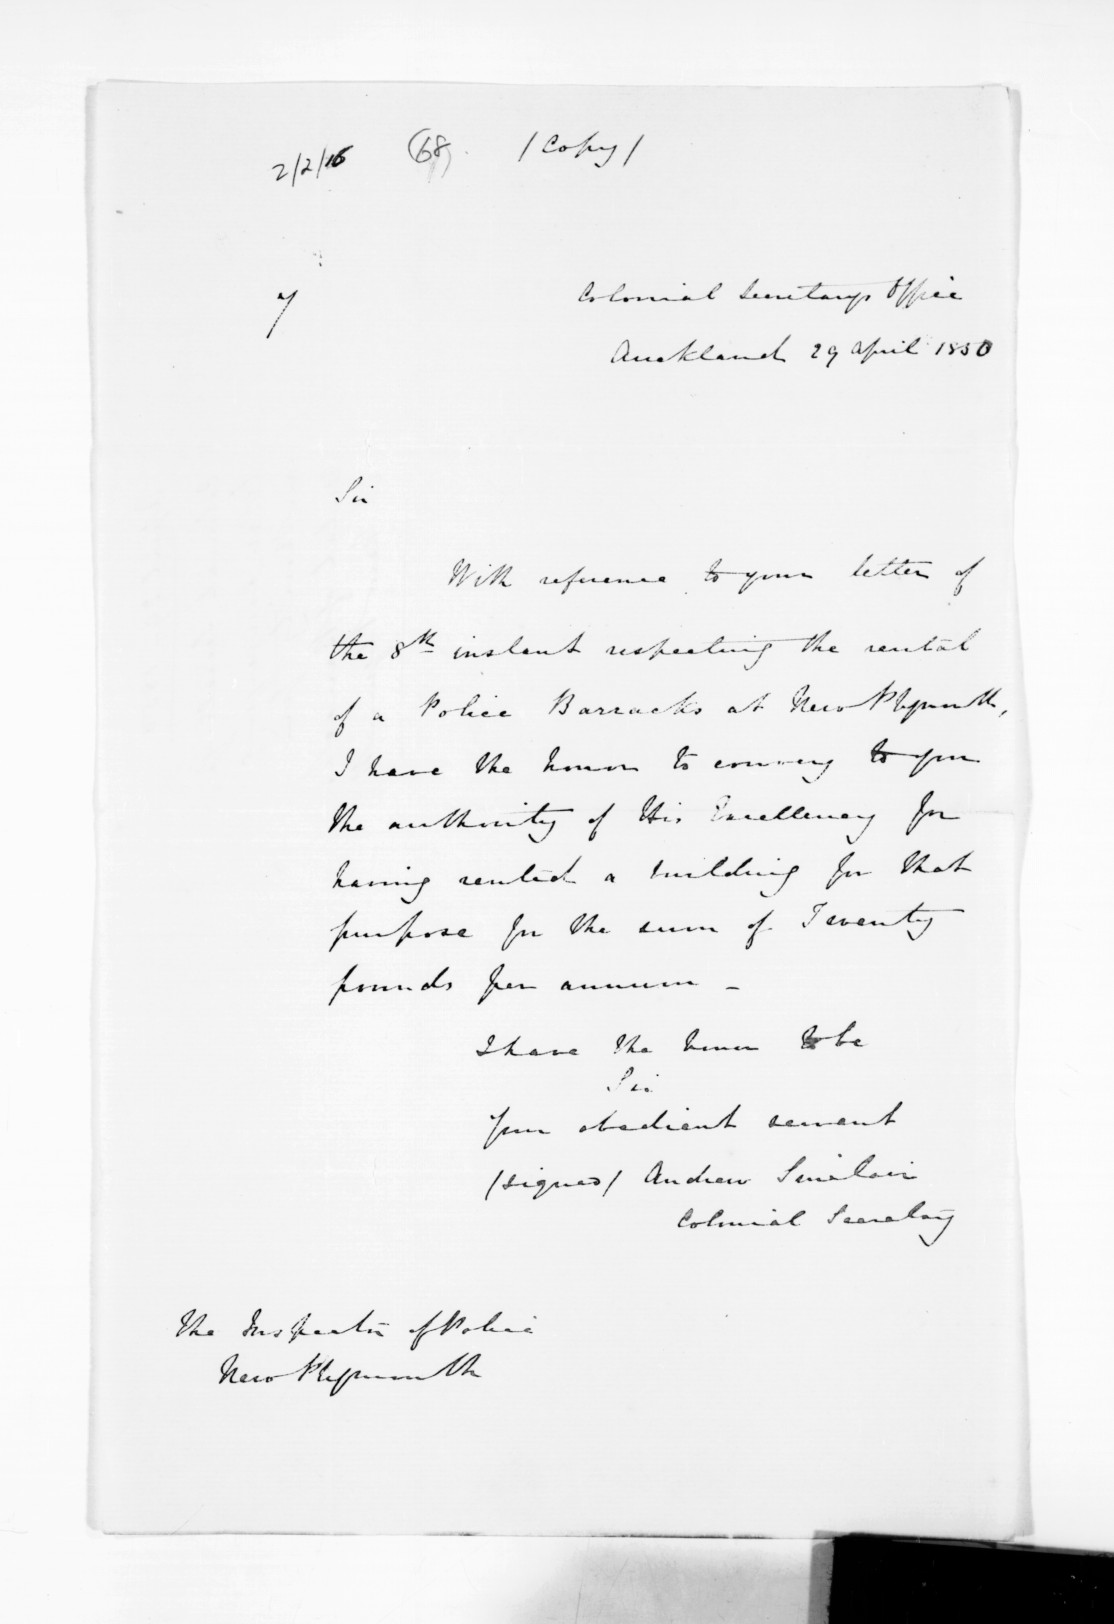 2/2/16 (68) / Copy /
7
Colonial Secretarys Office
Auckland 29 April 1850
Sir
With reference to your letter of
the 8th instant respecting the rental
of a Police Barracks at New Plymouth,
I have the honor to convey to you
the authority of His Excellency for
having rented a building for that
purpose for the sum of Twenty
pounds per annum –
I have the honor to be
Sir
Your obedient servant
/signed/ Andrew Sinclair
Colonial Secretary
The Inspector of Police
New Plymouth